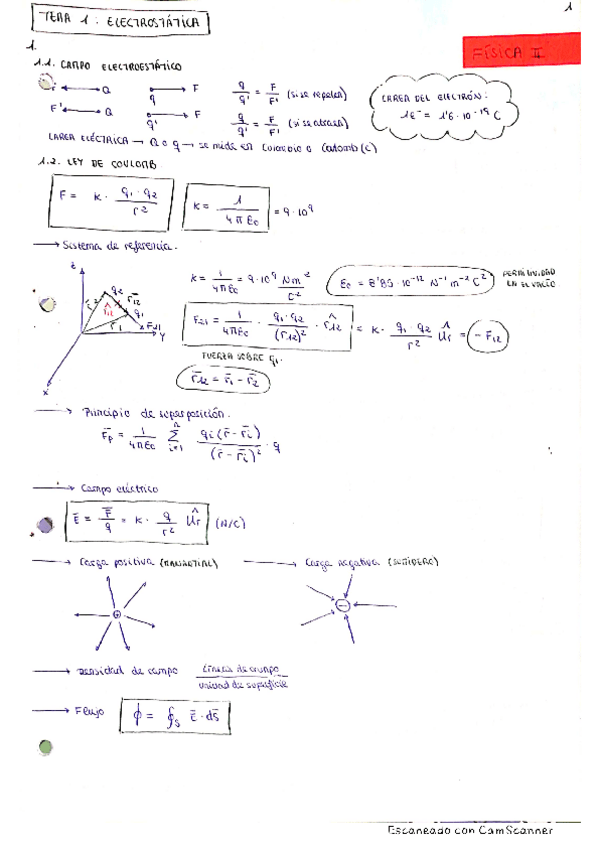 1
TEMA 1: ELECTROSTÁTICA
FÍSICA II
1.
1.1. CAMPO ELECTROESTÁTICO
F ← Q q → F q/q' = F/F' (si se repelen)
F' ← Q q' → F q/q' = F/F' (si se atraen)
CARGA DEL ELECTRÓN:
1e⁻ = 1'6·10⁻¹⁹ C
CARGA ELÉCTRICA → Q o q → se mide en Culombio o Coulomb (C)
1.2. LEY DE COULOMB
F = K · q₁·q₂/r² K = 1/4πε₀ = 9·10⁹
→ Sistema de referencia.
z q₂ r₁₂ q₁ r₂ r̂₁₂ r₁ F₂₁ y x
K = 1/4πε₀ = 9·10⁹ Nm²/C² ε₀ = 8'85·10⁻¹² N⁻¹ m⁻² C² PERMITIVIDAD EN EL VACÍO
F₂₁ = 1/4πε₀ · q₁·q₂/(r₁₂)² · r̂₁₂ = K · q₁·q₂/r² Ûr = -F₁₂
FUERZA SOBRE q₁.
r̄₁₂ = r̄₁ - r̄₂
→ Principio de superposición.
F̄p = 1/4πε₀ Σ i=1 n qi(r̄-r̄i)/(r̄-r̄i)² · q
→ Campo eléctrico
Ē = F̄/q = K · q/r² Ûr (N/C)
→ Carga positiva (MANANTIAL) → Carga negativa (SUMIDERO)
+ −
→ Densidad de campo Líneas de campo/unidad de superficie
→ Flujo ϕ = ∮s Ē·ds̄
Escaneado con CamScanner